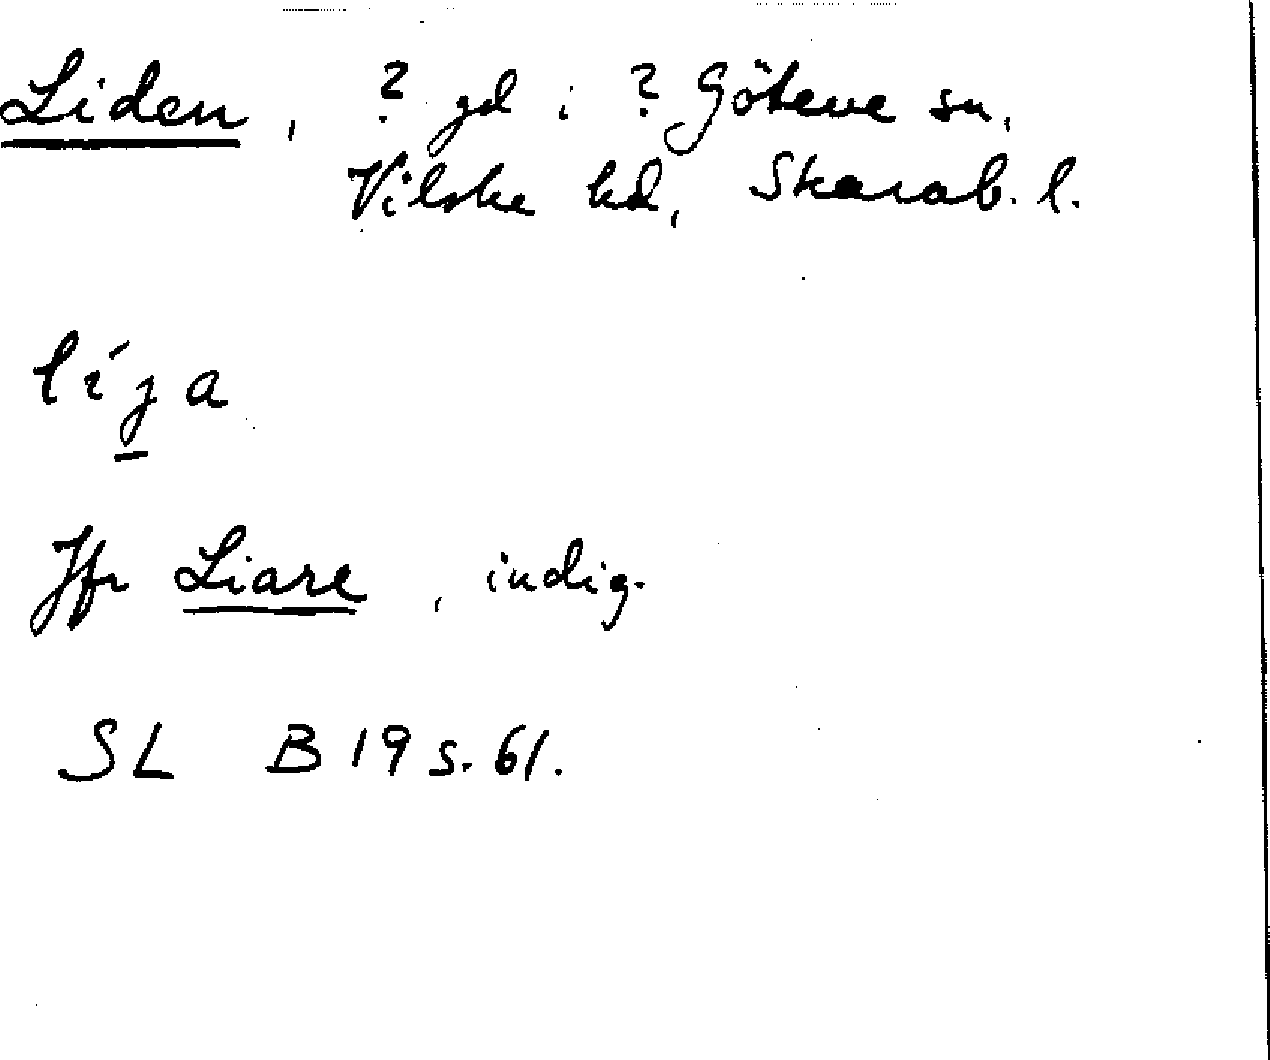 Liden, ? gd i ? Göteve sn,
Vilske hd, Skarab. l.
líja
Jfr Liare, indig.
SL B 19 s. 61.